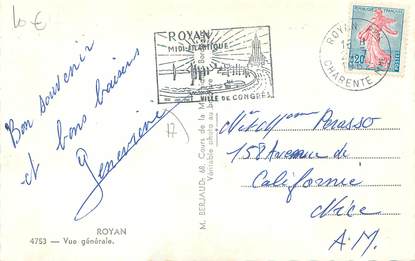 10 €
ROYAN
MIDI-ATLANTIQUE
VILLE DE CONGRÈS
ROYAN
CHARENTE
0,20
Bon souvenir
et bons baisers
Geneviève
M. BERJAUD - 68, Cours de la
Véritable photo au
Mr et Mme Porasso
158 Avenue de
Californie
Nice
A.M.
ROYAN
4753 - Vue générale.